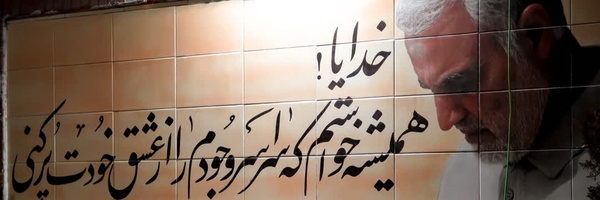 خدایا!
همیشه خواستم که سراسر وجودم را از عشق خودت پر کنی